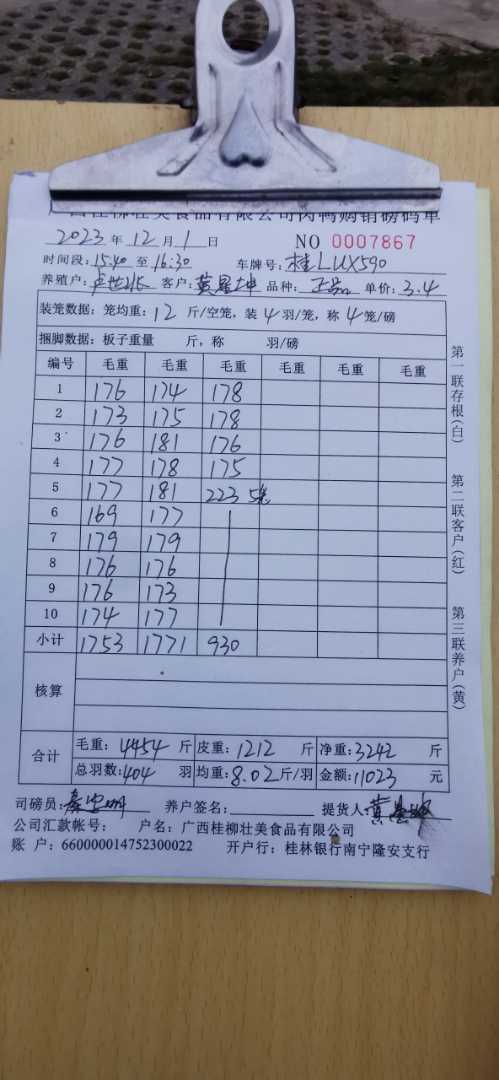 广西桂柳壮美食品有限公司肉鸭购销磅码单
2023年12月1日 NO 0007867
时间段:15:40至16:30 车牌号:桂LUX590
养殖户: 客户:黄 坤 品种:正品 单价:3.4
装笼数据:笼均重:12斤/空笼,装4羽/笼,称4笼/磅
捆脚数据:板子重量 斤,称 羽/磅
编号 毛重 毛重 毛重 毛重 毛重 毛重
1 176 174 178
2 173 175 178
3 176 181 176
4 177 178 175
5 177 181 223 5笼
6 169 177
7 179 179
8 176 176
9 176 173
10 174 177
小计 1753 1771 930
核算
合计 毛重:4454斤 皮重:1212斤 净重:3242斤
总羽数:404羽 均重:8.02斤/羽 金额:11023元
司磅员: 养户签名: 提货人:黄
公司汇款帐号: 户名:广西桂柳壮美食品有限公司
账 户:660000014752300022 开户行:桂林银行南宁隆安支行
第一联存根(白)
第二联客户(红)
第三联养户(黄)